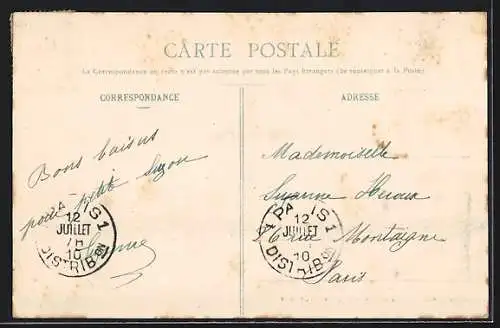 CARTE POSTALE
La Correspondance au recto n'est pas acceptée par tous les Pays étrangers (Se renseigner à la Poste)
CORRESPONDANCE
ADRESSE
Bons baisers
pour petite Suzon
PARIS 1
12
JUILLET
7H
10
DISTRIB ON
Mademoiselle
Suzanne
rue Montaigne
Paris
PARIS 1
12
JUILLET
10
DISTRIB